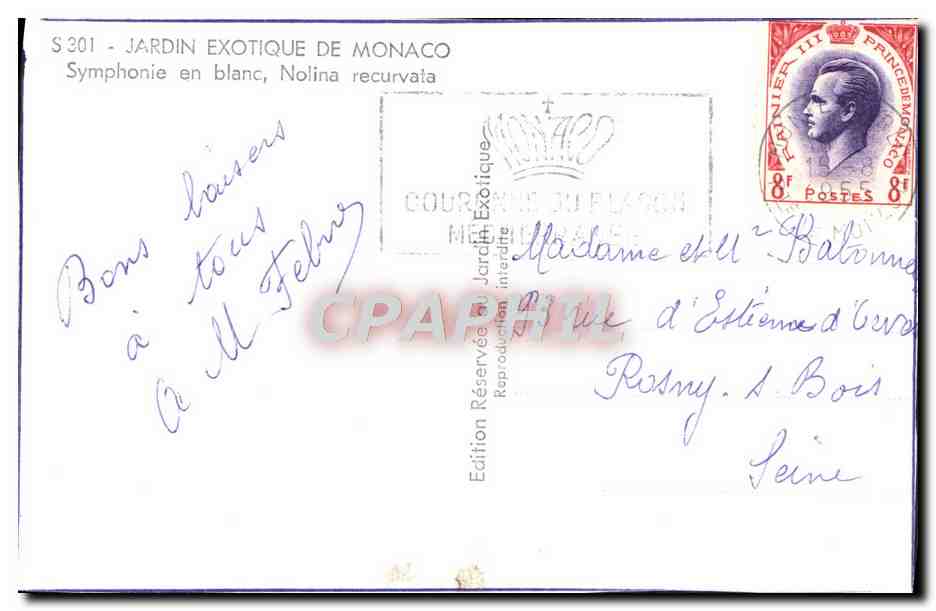 S 301 - JARDIN EXOTIQUE DE MONACO
Symphonie en blanc, Nolina recurvata
MONACO
COURONNE DU BLASON
RAINIER III PRINCE DE MONACO
8F POSTES 8F
Bons baisers
à tous
M Febvre
Edition Réservée au Jardin Exotique
Reproduction interdite
Madame et Mr
93 rue d'Estienne d'Orves
Rosny. s Bois
Seine
CPAPHIL